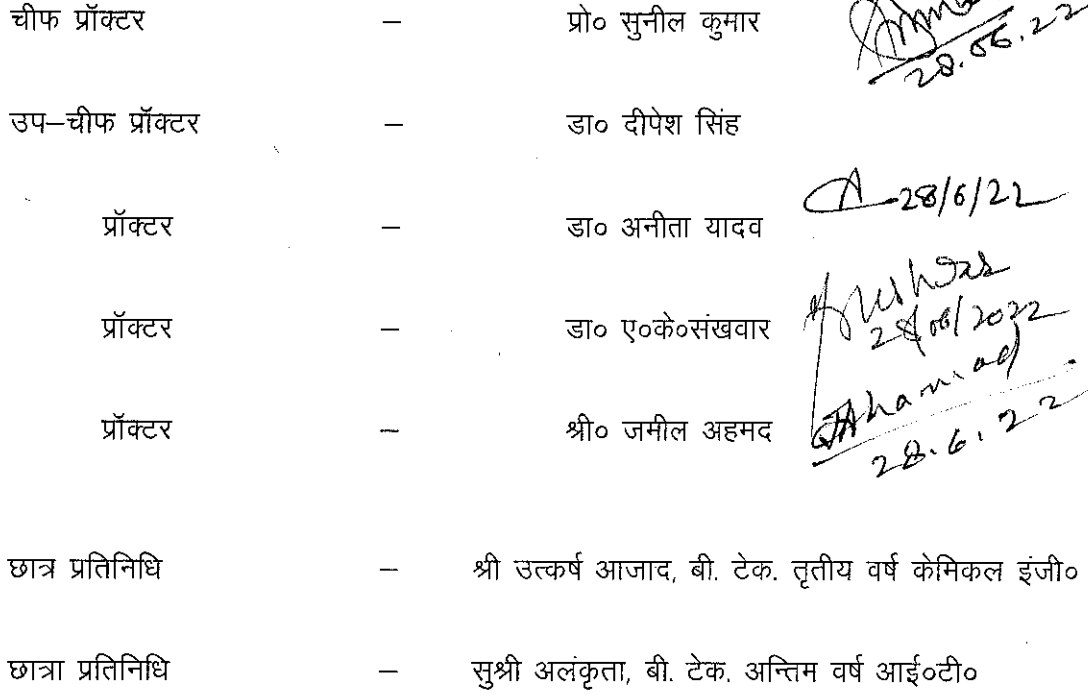 चीफ प्रॉक्टर – प्रो० सुनील कुमार
28.06.22
उप–चीफ प्रॉक्टर – डा० दीपेश सिंह
28/6/22
प्रॉक्टर – डा० अनीता यादव
प्रॉक्टर – डा० ए०के०संखवार
28/06/2022
प्रॉक्टर – श्री० जमील अहमद
28.6.22
छात्र प्रतिनिधि – श्री उत्कर्ष आजाद, बी. टेक. तृतीय वर्ष केमिकल इंजी०
छात्रा प्रतिनिधि – सुश्री अलंकृता, बी. टेक. अन्तिम वर्ष आई०टी०